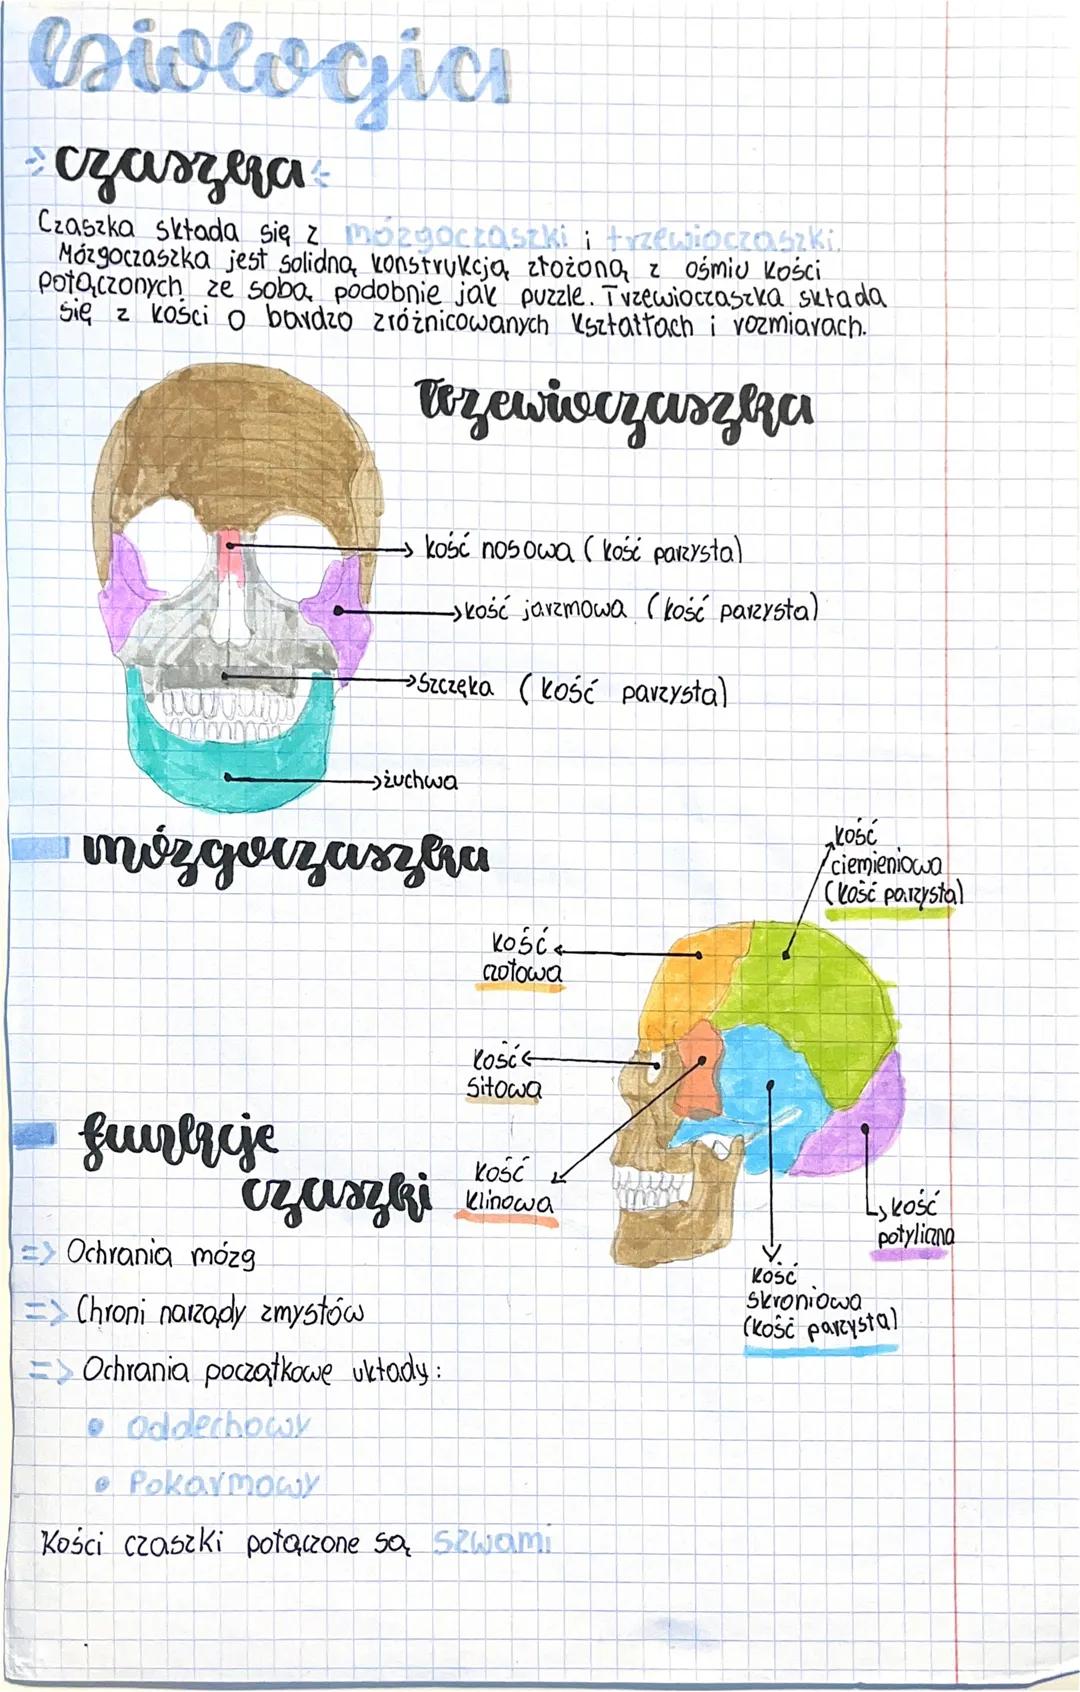 biologia
czaszka
Czaszka składa się z mózgoczaszki i trzewioczaszki.
Mózgoczaszka jest solidną konstrukcją złożoną z ośmiu kości
połączonych ze sobą podobnie jak puzzle. Trzewioczaszka składa
się z kości o bardzo zróżnicowanych kształtach i rozmiarach.
trzewioczaszka
kość nosowa (kość parzysta)
kość jarzmowa (kość parzysta)
szczęka (kość parzysta)
żuchwa
mózgoczaszka
kość
ciemieniowa
(kość parzysta)
kość
czołowa
kość
sitowa
kość
klinowa
kość
potyliczna
kość
skroniowa
(kość parzysta)
funkcje
czaszki
=> Ochrania mózg
=> Chroni narządy zmysłów
=> Ochrania początkowe układy:
• oddechowy
• Pokarmowy
Kości czaszki połączone są szwami